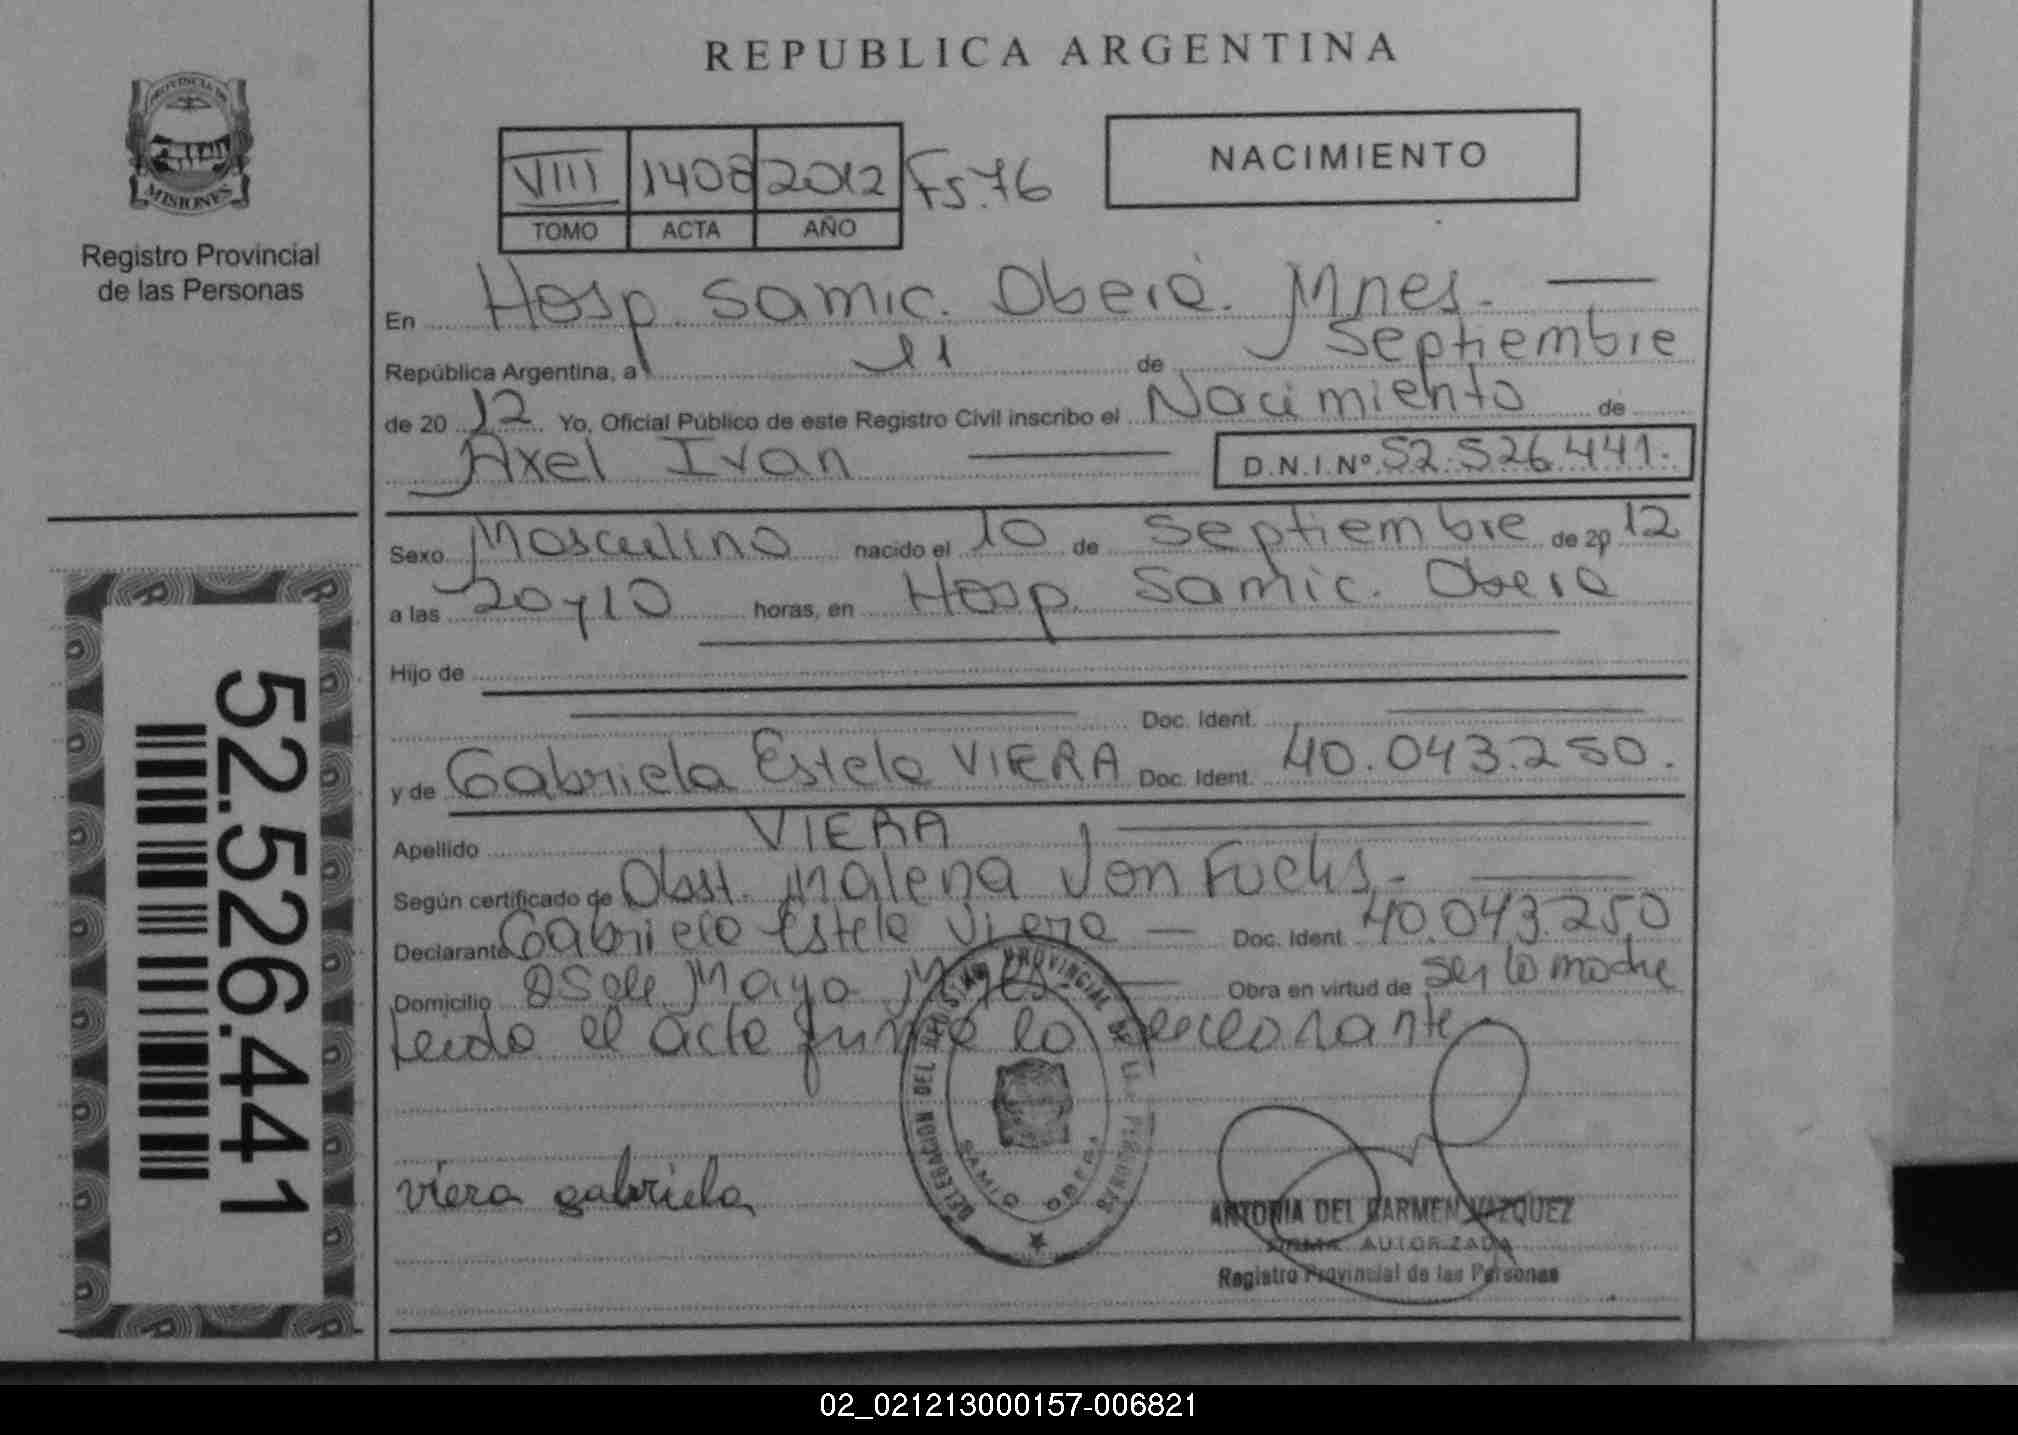 REPUBLICA ARGENTINA
PROVINCIA DE
MISIONES
Registro Provincial
de las Personas
VIII 1408 2012 Fs. 76
TOMO ACTA AÑO
NACIMIENTO
En Hosp. Samic. Oberá. Mnes.
República Argentina, a 11 de Septiembre
de 20 12 Yo, Oficial Público de este Registro Civil inscribo el Nacimiento de
Axel Ivan D.N.I.Nº 52.526.441.
Sexo Masculino nacido el 10 de Septiembre de 20 12
a las 20 y 10 horas, en Hosp. Samic. Oberá
Hijo de
Doc. Ident.
y de Gabriela Estela VIERA Doc. Ident. 40.043.250.
Apellido VIERA
Según certificado de Obst. Malena Von Fuchs.
Declarante Gabriela Estela Viera Doc. Ident. 40.043.250
Domicilio 25 de Mayo Mnes. Obra en virtud de ser la madre
Leida el acta firma la declarante
viera gabriela
DELEGACION DEL REGISTRO PROVINCIAL DE LAS PERSONAS
SAMIC OBERA
ANTONIA DEL CARMEN VAZQUEZ
FIRMA AUTORIZADA
Registro Provincial de las Personas
52.526.441
02_021213000157-006821